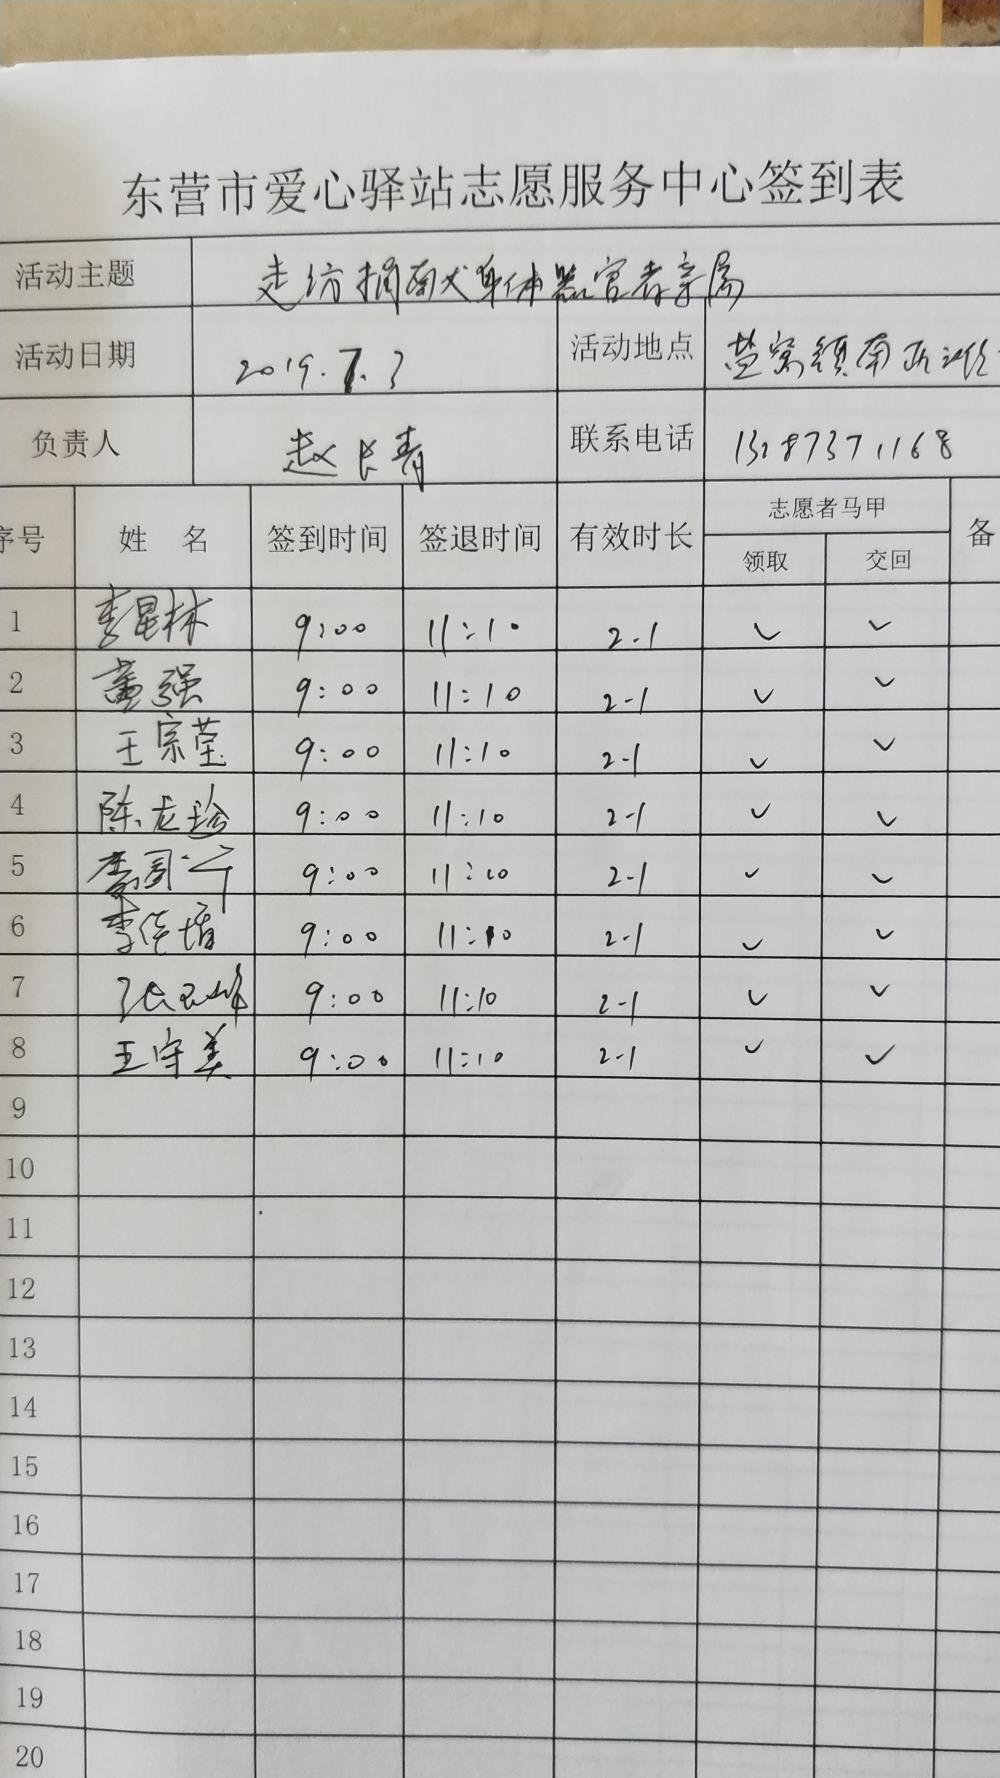 东营市爱心驿站志愿服务中心签到表
活动主题 走访捐献身体器官者亲属
活动日期 2019.7.3 活动地点 盐窝镇南
负责人 赵长青 联系电话 13287371168
序号 姓 名 签到时间 签退时间 有效时长 志愿者马甲 备
领取 交回
1 李星林 9:00 11:10 2-1 ✓ ✓
2 董强 9:00 11:10 2-1 ✓ ✓
3 王宗莹 9:00 11:10 2-1 ✓ ✓
4 陈龙珍 9:00 11:10 2-1 ✓ ✓
5 9:00 11:10 2-1 ✓ ✓
6 李佳 9:00 11:10 2-1 ✓ ✓
7 张玉峰 9:00 11:10 2-1 ✓ ✓
8 王守美 9:00 11:10 2-1 ✓ ✓
9
10
11
12
13
14
15
16
17
18
19
20